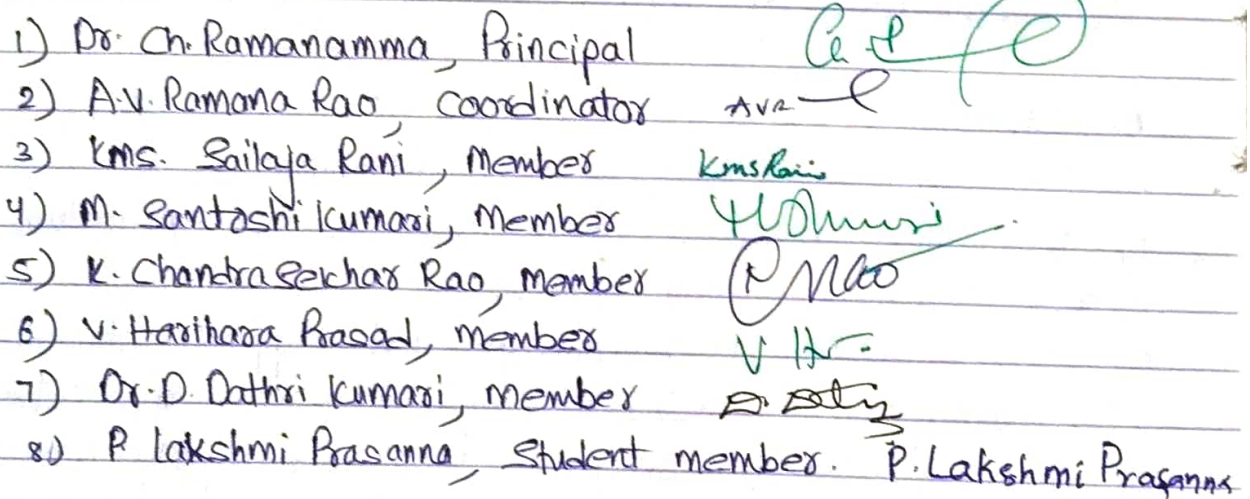 1) Dr. Ch. Ramanamma, Principal
2) A.V. Ramana Rao, Coordinator AVR
3) Kms. Sailaja Rani, Member Kms Rani
4) M. Santoshi Kumari, Member
5) K. Chandra Sekhar Rao, Member
6) V. Harihara Prasad, Member V H
7) Dr. D. Dathri Kumari, Member
8) P. Lakshmi Prasanna, Student member. P. Lakshmi Prasanna